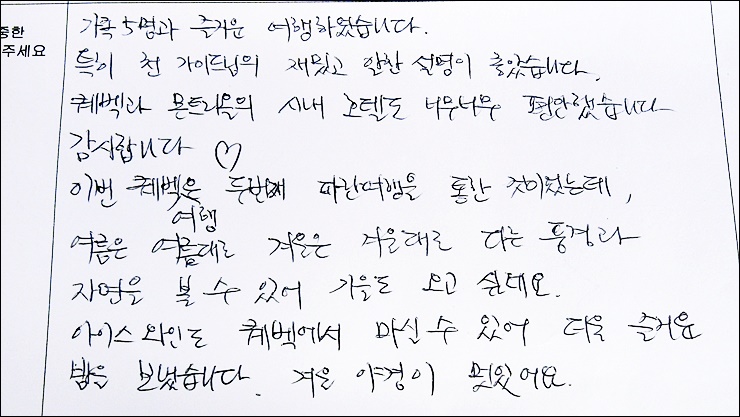 중한
주세요
가족 5명과 즐거운 여행하였습니다.
특히 천 가이드님의 재밌고 알찬 설명이 좋았습니다.
퀘벡과 몬트리올의 시내 호텔도 너무너무 편안했습니다
감사합니다 ♡
이번 퀘벡은 두번째 파란여행을 통한 것이었는데,
여행
여름은 여름대로 겨울은 겨울대로 다른 풍경과
자연을 볼 수 있어 가을도 오고 싶네요.
아이스와인도 퀘벡에서 마실 수 있어 더욱 즐거운
밤을 보냈습니다. 겨울 야경이 멋있어요.